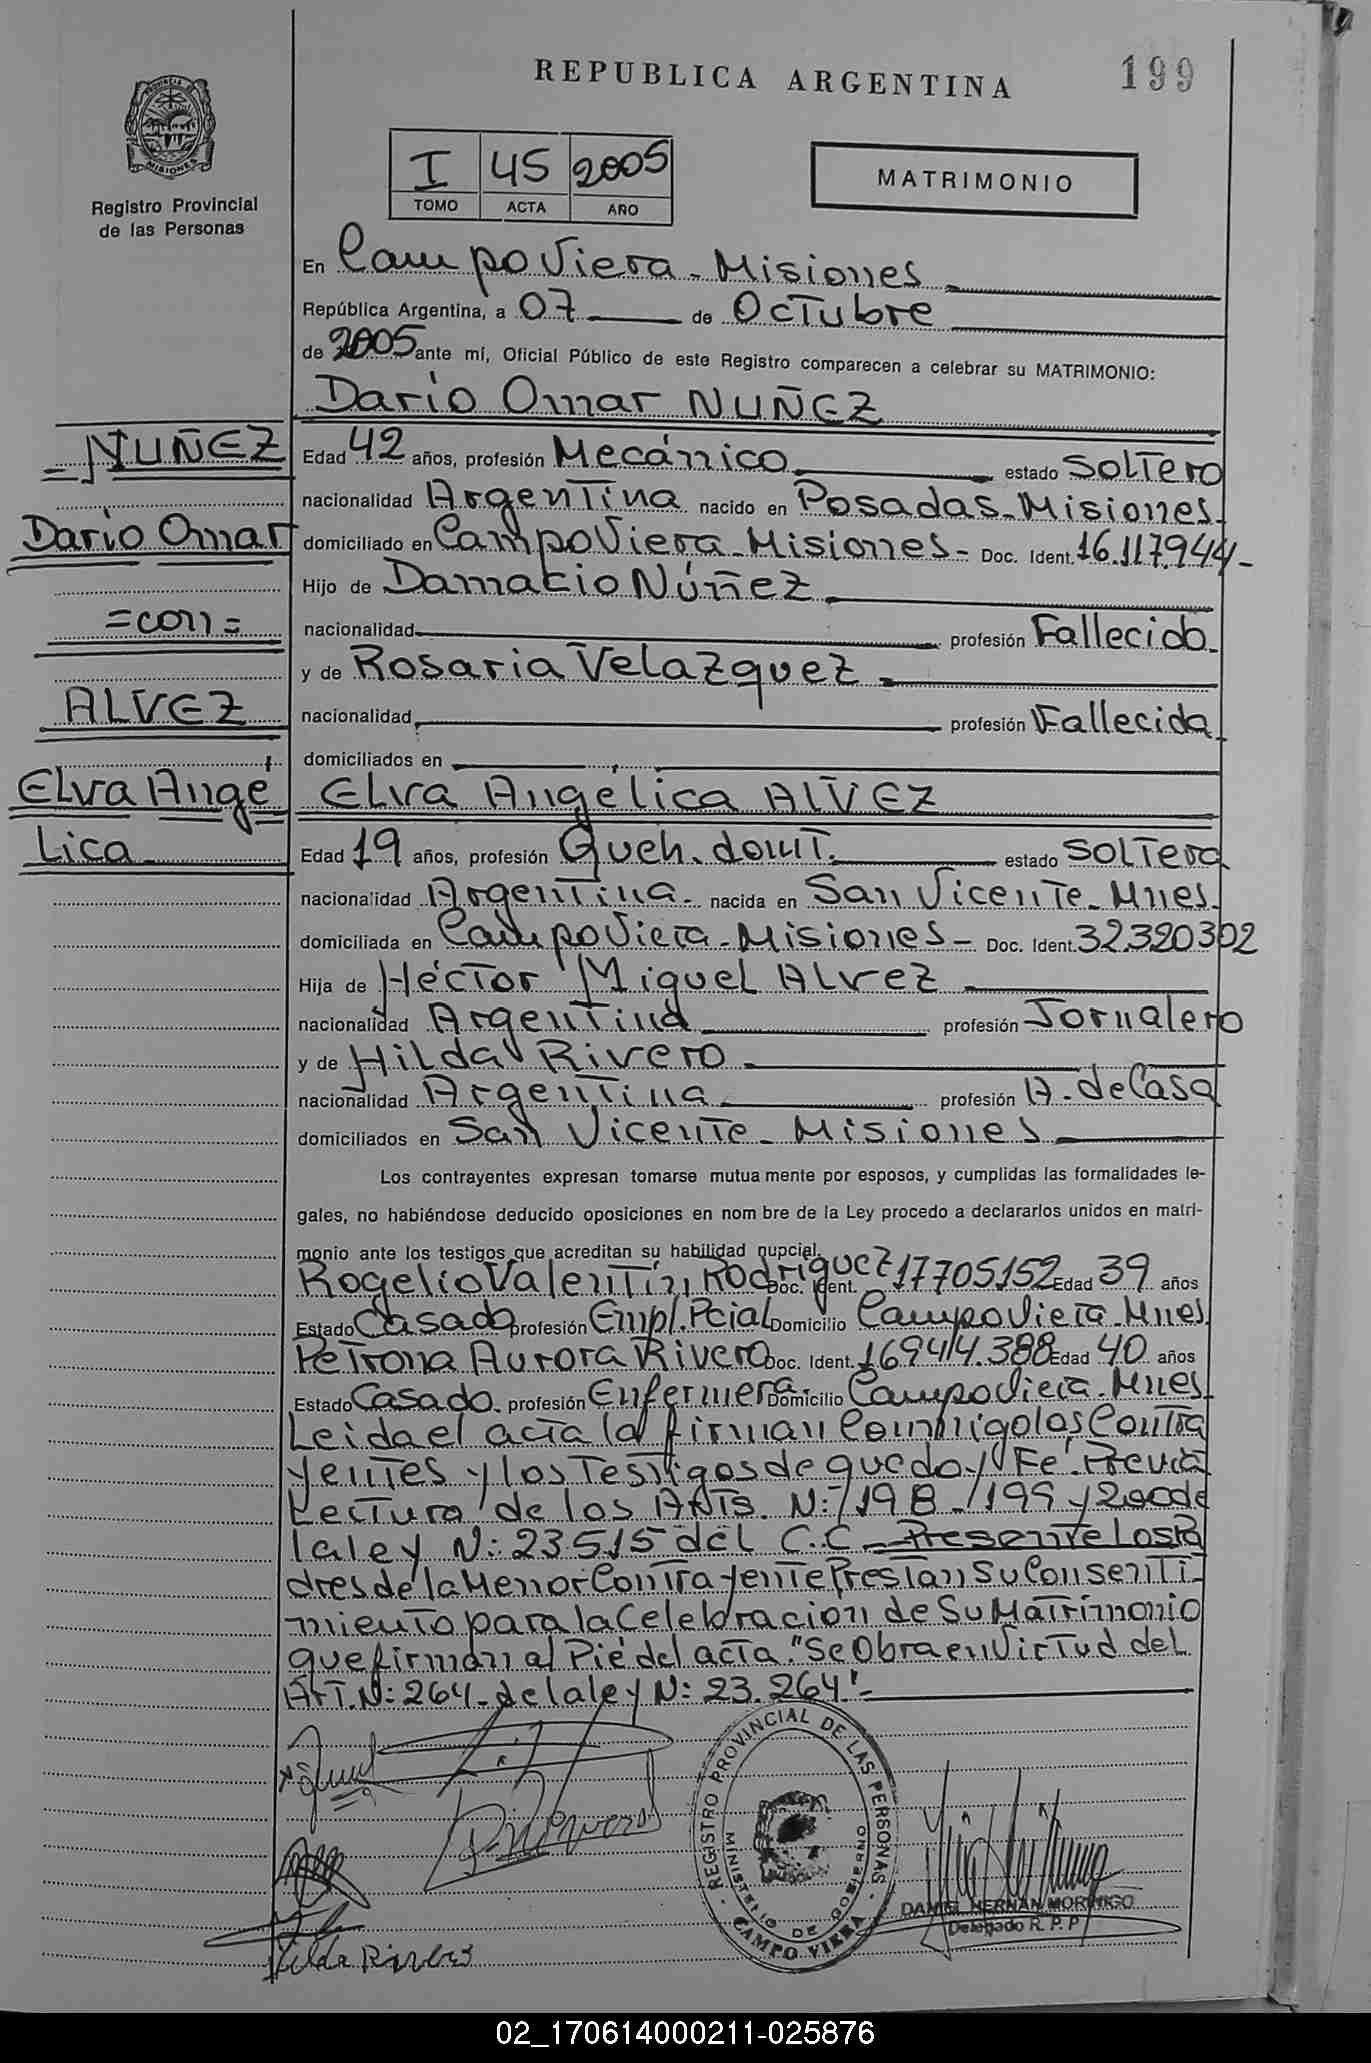 REPUBLICA ARGENTINA
199
PROVINCIA DE
MISIONES
Registro Provincial
de las Personas
I 45 2005
TOMO ACTA AÑO
MATRIMONIO
En Campo Viera - Misiones
República Argentina, a 07 de Octubre
de 2005 ante mí, Oficial Público de este Registro comparecen a celebrar su MATRIMONIO:
Darío Omar NUÑEZ
NUÑEZ
Darío Omar
=con=
ALVEZ
Elva Angé
lica
Edad 42 años, profesión Mecánico estado Soltero
nacionalidad Argentina nacido en Posadas - Misiones
domiciliado en Campo Viera - Misiones - Doc. Ident. 16.117.944 -
Hijo de Damacio Núñez
nacionalidad profesión Fallecido
y de Rosaria Velazquez
nacionalidad profesión Fallecida
domiciliados en
Elva Angélica ALVEZ
Edad 19 años, profesión Queh. domt. estado Soltera
nacionalidad Argentina nacida en San Vicente - Mnes.
domiciliada en Campo Viera - Misiones - Doc. Ident. 32.320302
Hija de Héctor Miguel Alvez
nacionalidad Argentina profesión Jornalero
y de Hilda Rivero
nacionalidad Argentina profesión A. de Casa
domiciliados en San Vicente - Misiones
Los contrayentes expresan tomarse mutua mente por esposos, y cumplidas las formalidades le-
gales, no habiéndose deducido oposiciones en nom bre de la Ley procedo a declararlos unidos en matri-
monio ante los testigos que acreditan su habilidad nupcial.
Rogelio Valentín Rodríguez Doc. Ident. 17705152 Edad 39 años
Estado Casado profesión Empl. Pcial Domicilio Campo Viera - Mnes
Petrona Aurora Rivero Doc. Ident. 16944.388 Edad 40 años
Estado Casado profesión Enfermera Domicilio Campo Viera - Mnes
Leida el acta la firman conmigo los Contra
yentes y los Testigos de que doy Fé. Previa
Lectura de los Arts. N: 198 - 199 y 200 de
la ley N: 23515 del C.C. Presente Los Pa
dres de la Menor Contrayente Prestan Su Consenti
miento para la Celebracion de Su Matrimonio
que firman al Pié del acta. "Se Obra en Virtud del
Art. N: 264 - de la ley N: 23.264"
REGISTRO PROVINCIAL DE LAS PERSONAS
MINISTERIO DE GOBIERNO
CAMPO VIERA
DANIEL HERNAN MORINIGO
Delegado R. P. P.
Hilda
02_170614000211-025876